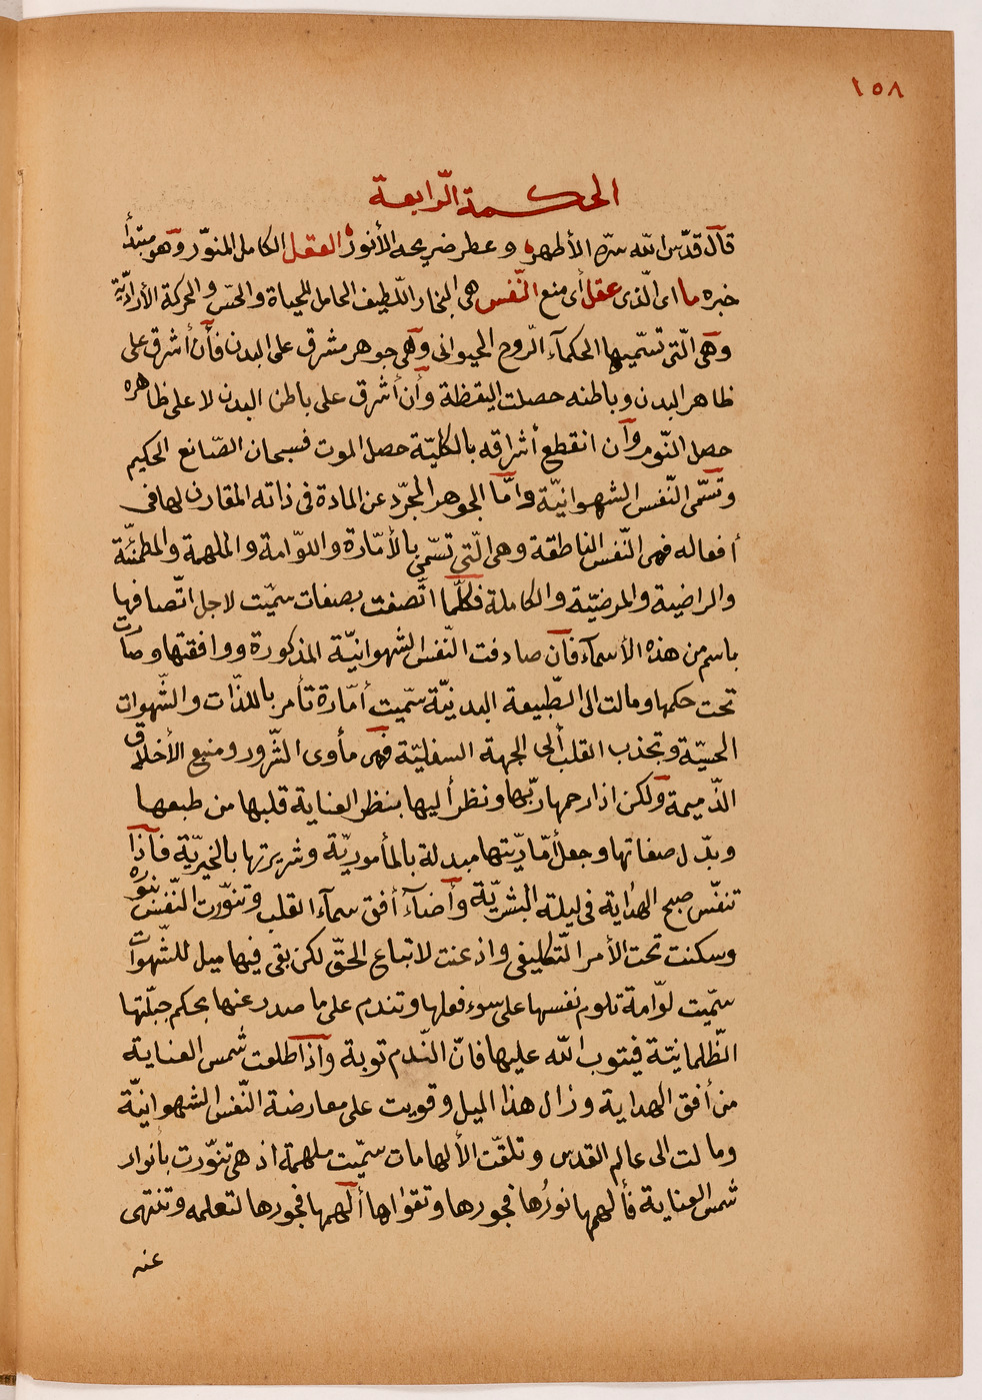 ٢٥٨
الحكمة الرابعة
قال قدّس الله سرّه الأطهر وعطر ضريحه الأنور العقل الكامل المنوّر وهو مبتدأ
خبره ما اى الّذى عقل أى منع النّفس هى البخار اللّطيف الحامل للحياة والحسّ والحركة الأراديّة
وهى الّتى تسمّيها الحكمآء الرّوح الحيوانى وهى جوهر مشرق على البدن فأن أشرق على
ظاهر البدن وباطنه حصلت اليقظة وأن أشرق على باطن البدن لا على ظاهره
حصل النّوم وأن انقطع أشراقه بالكليّة حصل الموت فسبحان الصّانع الحكيم
وتسمّى النّفس الشهوانيّة وامّا الجوهر المجرّد عن المادة فى ذاته المقارن لها فى
أفعاله فهى النّفس الناطقة وهى الّتى تسمّى بالأمّارة واللوّامة والملهمة والمطمئنّة
والراضية والمرضيّة والكاملة فكلّما اتّصفت بصفات سمّيت لاجل اتّصافها
باسم من هذه الأسمآء فأن صادفت النّفس الشهوانيّة المذكورة ووافقتها وصارت
تحت حكمها ومالت الى الطّبيعة البدنيّة سمّيت أمّارة تأمر باللذّات والشّهوات
الحسيّة وتجذب القلب ألى الجهة السفليّة فهى مأوى الشّرور ومنبع الأخلاق
الذّميمة ولكن اذا رحمها ربّها ونظر أليها بنظر العناية قلبها من طبعها
وبدّل صفاتها وجعل أمّاريّتها مبدلة بالمأموريّة وشريرتها بالخيريّة فأذا
تنفّس صبح الهداية فى ليلة البشريّة وأضآء أفق سمآء القلب وتنوّرت النّفس بنوره
وسكنت تحت الأمر التّكليفى واذعنت لاتباع الحقّ لكن بقى فيها ميل للشّهوات
سمّيت لوّامة تلوم نفسها على سوء فعلها وتندم على ما صدر عنها بحكم جبلّتها
الظّلمانيّة فيتوب الله عليها فانّ النّدم توبة وأذا طلعت شمس العناية
من أفق الهداية وزال هذا الميل وقويت على معارضة النّفس الشهوانيّة
ومالت الى عالم القدس وتلقّت الألهامات سمّيت ملهمة اذ هى تنوّرت بأنوار
شمس العناية فألهمها نورُها فجورها وتقواها ألهمها فجورها لتعلمه وتنتهى
عنه